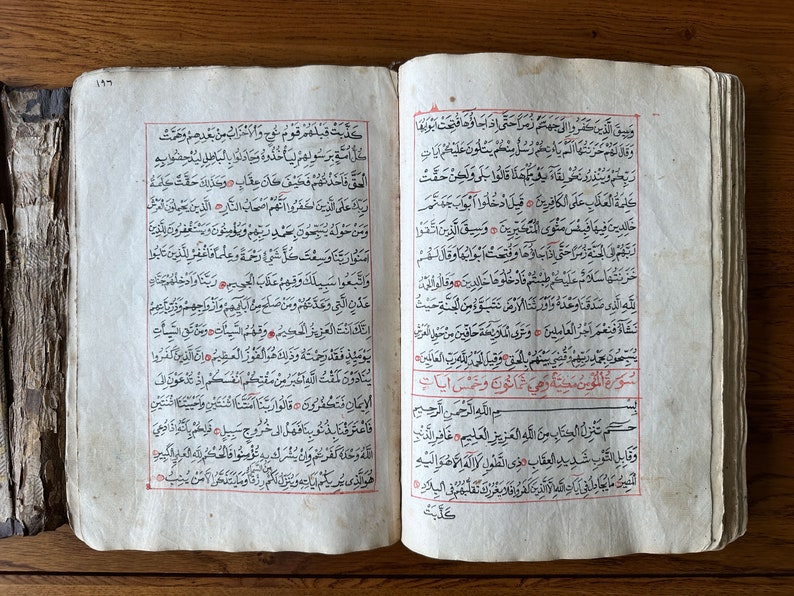 وسيق الذين كفروا الى جهنم زمرا حتى اذا جاؤها فتحت ابوابها
وقال لهم خزنتها الم ياتكم رسل منكم يتلون عليكم ايات
ربكم وينذرونكم لقاء يومكم هذا قالوا بلى ولكن حقت
كلمة العذاب على الكافرين قيل ادخلوا ابواب جهنم
خالدين فيها فبئس مثوى المتكبرين وسيق الذين اتقوا
ربهم الى الجنة زمرا حتى اذا جاؤها وفتحت ابوابها وقال لهم
خزنتها سلام عليكم طبتم فادخلوها خالدين وقالوا الحمد
لله الذي صدقنا وعده واورثنا الارض نتبوء من الجنة حيث
نشاء فنعم اجر العاملين وترى الملائكة حافين من حول العرش
يسبحون بحمد ربهم وقضي بينهم بالحق وقيل الحمد لله رب العالمين
سورة المؤمن مكية وهي ثمانون وخمس ايات
بسم الله الرحمن الرحيم
حم تنزيل الكتاب من الله العزيز العليم غافر الذنب
وقابل التوب شديد العقاب ذي الطول لا اله الا هو اليه
المصير ما يجادل في ايات الله الا الذين كفروا فلا يغررك تقلبهم في البلاد
كذبت
١٩٦
كذبت قبلهم قوم نوح والاحزاب من بعدهم وهمت
كل امة برسولهم لياخذوه وجادلوا بالباطل ليدحضوا به
الحق فاخذتهم فكيف كان عقاب وكذلك حقت كلمة
ربك على الذين كفروا انهم اصحاب النار الذين يحملون العرش
ومن حوله يسبحون بحمد ربهم ويؤمنون به ويستغفرون للذين
امنوا ربنا وسعت كل شيء رحمة وعلما فاغفر للذين تابوا
واتبعوا سبيلك وقهم عذاب الجحيم ربنا وادخلهم جنات
عدن التي وعدتهم ومن صلح من ابائهم وازواجهم وذرياتهم
انك انت العزيز الحكيم وقهم السيئات ومن تق السيئات
يومئذ فقد رحمته وذلك هو الفوز العظيم ان الذين كفروا
ينادون لمقت الله اكبر من مقتكم انفسكم اذ تدعون الى
الايمان فتكفرون قالوا ربنا امتنا اثنتين واحييتنا اثنتين
فاعترفنا بذنوبنا فهل الى خروج من سبيل ذلكم بانه اذا دعي
الله وحده كفرتم وان يشرك به تؤمنوا فالحكم لله العلي الكبير
هو الذي يريكم اياته وينزل لكم من السماء رزقا وما يتذكر الا من ينيب